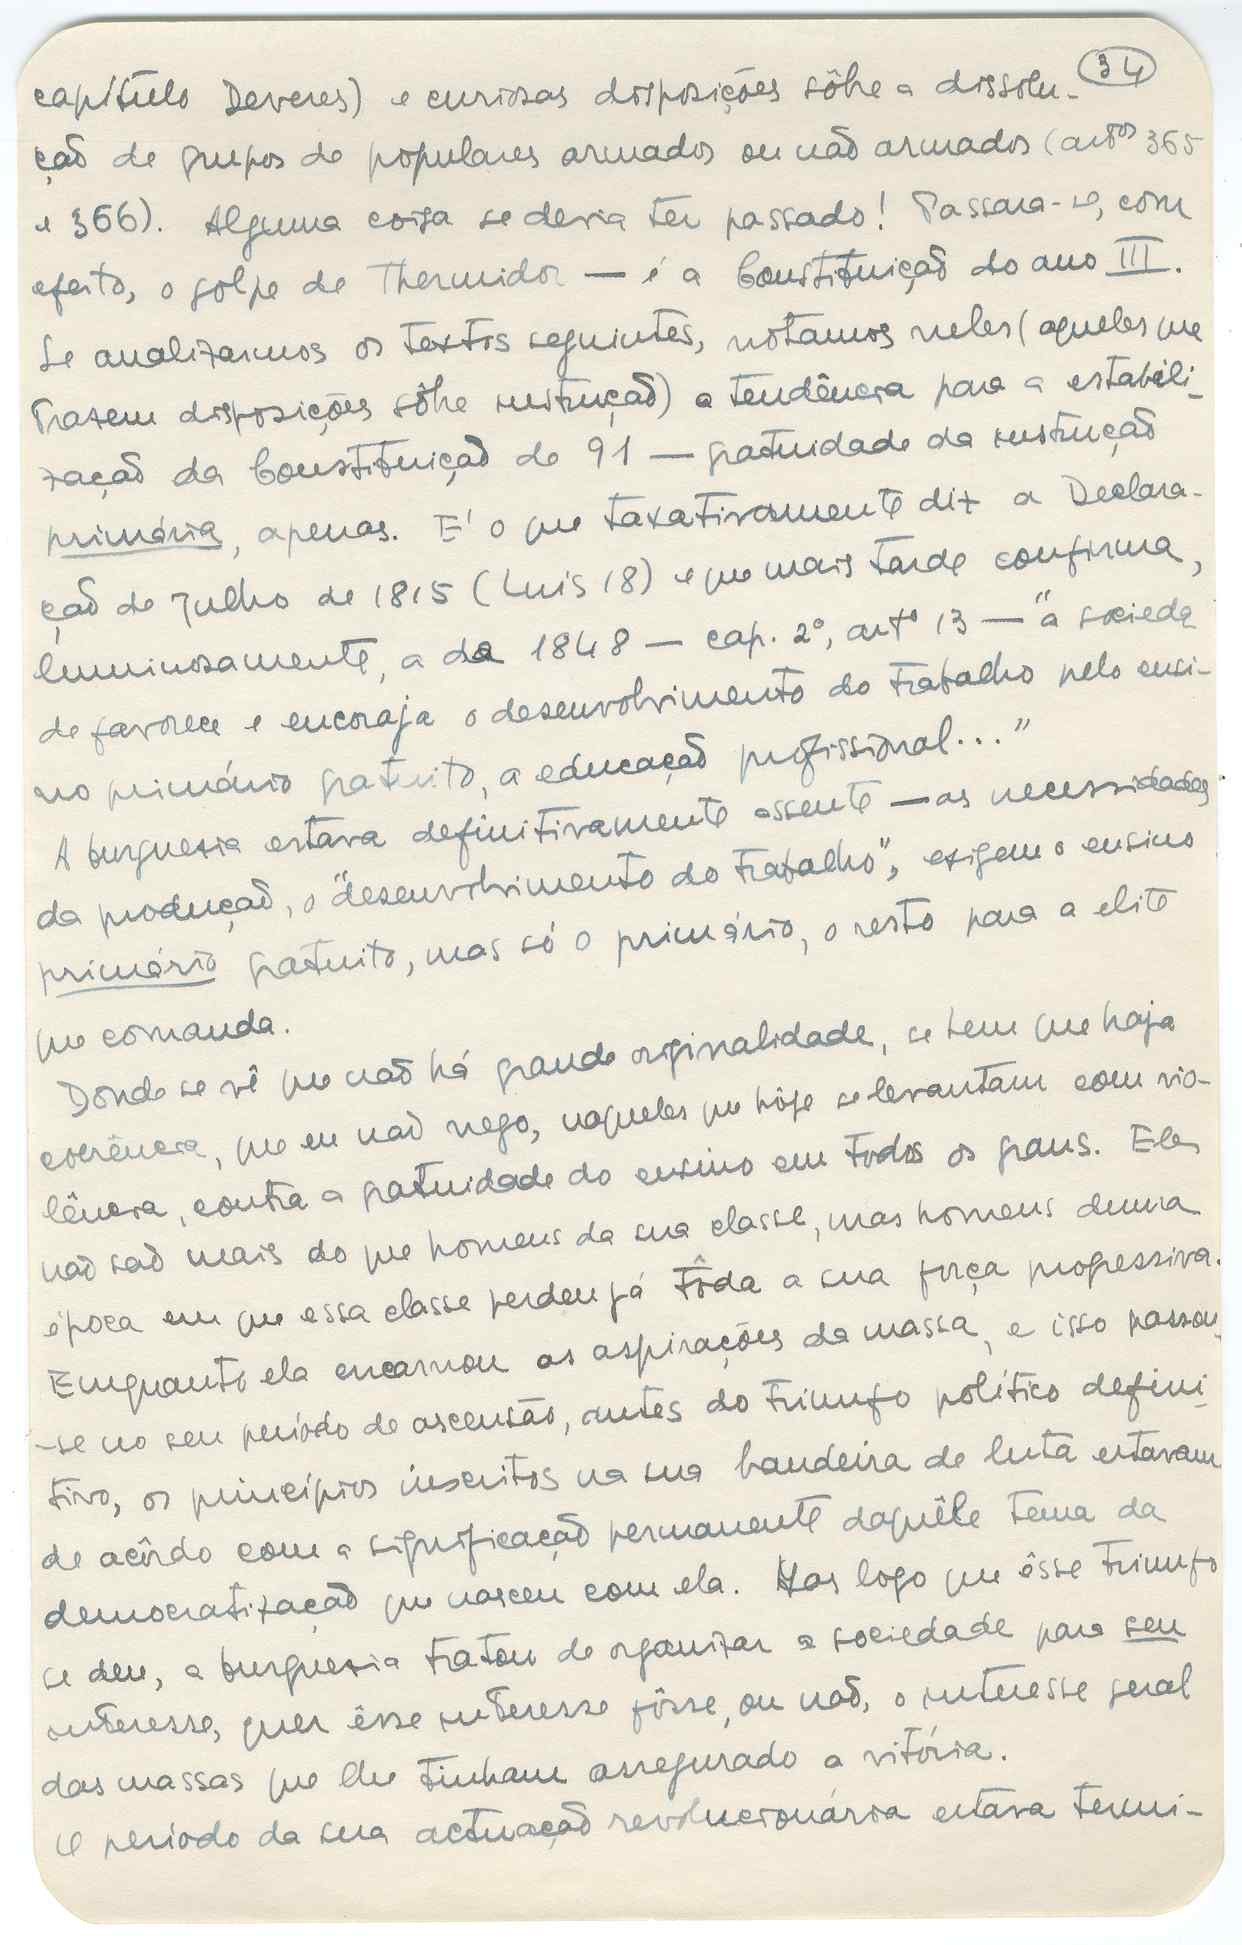 34
capítulo Deveres) e curiosas disposições sôbre a dissolu-
ção de grupos de populares armados ou não armados (artos 365
e 366). Alguma coisa se devia ter passado! Passara-se, com
efeito, o golpe de Thermidor — é a Constituição do ano III.
Se analizarmos os textos seguintes, notamos neles (aqueles que
trazem disposições sôbre instrução) a tendência para a estabili-
zação da Constituição de 91 — gratuidade da instrução
primária, apenas. E' o que taxativamente diz a Declara-
ção de Julho de 1815 (Luis 18) e que mais tarde confirma,
luminosamente, a de 1848 — cap. 2º, artº 13 — "a socieda
de favorece e encoraja o desenvolvimento do trabalho pelo ensi-
no primário gratuito, a educação profissional..."
A burguezia estava definitivamente assente — as necessidades
da produção, o "desenvolvimento do trabalho", exigem o ensino
primário gratuito, mas só o primário, o resto para a elite
que comanda.
Donde se vê que não há grande originalidade, se bem que haja
coerência, que eu não nego, naqueles que hoje se levantam com vio-
lência, contra a gratuidade do ensino em todos os graus. Eles
não são mais do que homens da sua classe, mas homens duma
época em que essa classe perdeu já tôda a sua força progressiva.
Emquanto ela encarnou as aspirações da massa, e isso passou-
-se no seu período de ascensão, antes do triunfo político defini-
tivo, os princípios inscritos na sua bandeira de luta estavam
de acôrdo com a significação permanente daquêle tema da
democratização que nasceu com ela. Mas logo que êsse triunfo
se deu, a burguezia tratou de organizar a sociedade para seu
interesse, quer êsse interesse fôsse, ou não, o interesse geral
das massas que lhe tinham assegurado a vitória.
O período da sua actuação revolucionária estava termi-